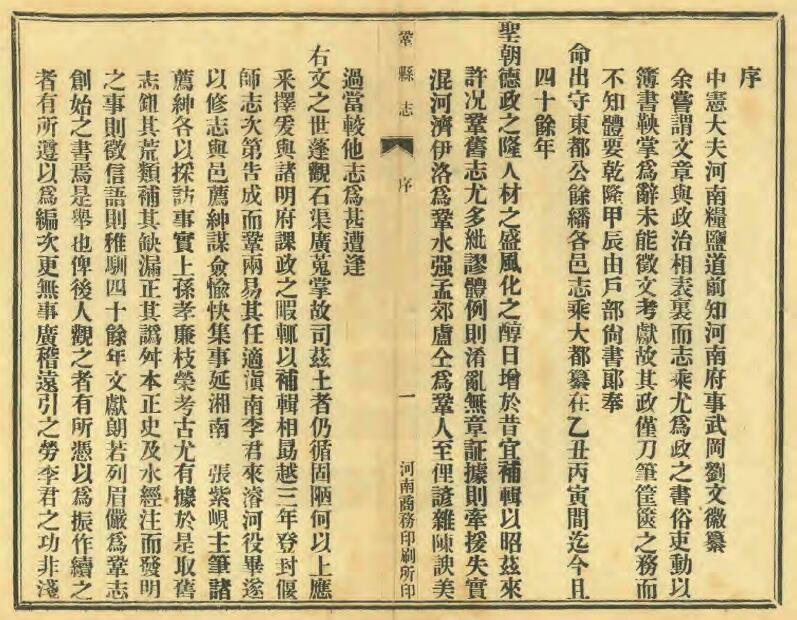 序
中憲大夫河南糧鹽道前知河南府事武岡劉文徽纂
余嘗謂文章與政治相表裏而志乘尤爲政之書俗吏動以
簿書鞅掌爲辭未能徵文考獻故其政僅刀筆筐篋之務而
不知體要乾隆甲辰由戶部尙書郞奉
命出守東都公餘繙各邑志乘大都纂在乙丑丙寅間迄今且
四十餘年
聖朝德政之隆人材之盛風化之醇日增於昔宜補輯以昭茲來
許况鞏舊志尤多紕謬體例則淆亂無章証據則牽援失實
混河濟伊洛爲鞏水强孟郊盧仝爲鞏人至俚諺雜陳諛美
鞏縣志
序
一
河南商務印刷所印
過當較他志爲甚遭逢
右文之世蓬觀石渠廣蒐掌故司茲土者仍循固陋何以上應
釆擇爰與諸明府課政之暇輒以補輯相勗越三年登封偃
師志次第告成而鞏兩易其任適滇南李君來濬河役畢遂
以修志與邑薦紳謀僉愉快集事延湘南 張紫峴主筆諸
薦紳各以採訪事實上孫孝廉枝榮考古尤有據於是取舊
志鈕其荒類補其缺漏正其譌舛本正史及水經注而發明
之事則徵信語則雅馴四十餘年文獻朗若列眉儼爲鞏志
創始之書焉是舉也俾後人觀之者有所憑以爲振作續之
者有所遵以爲編次更無事廣稽遠引之勞李君之功非淺